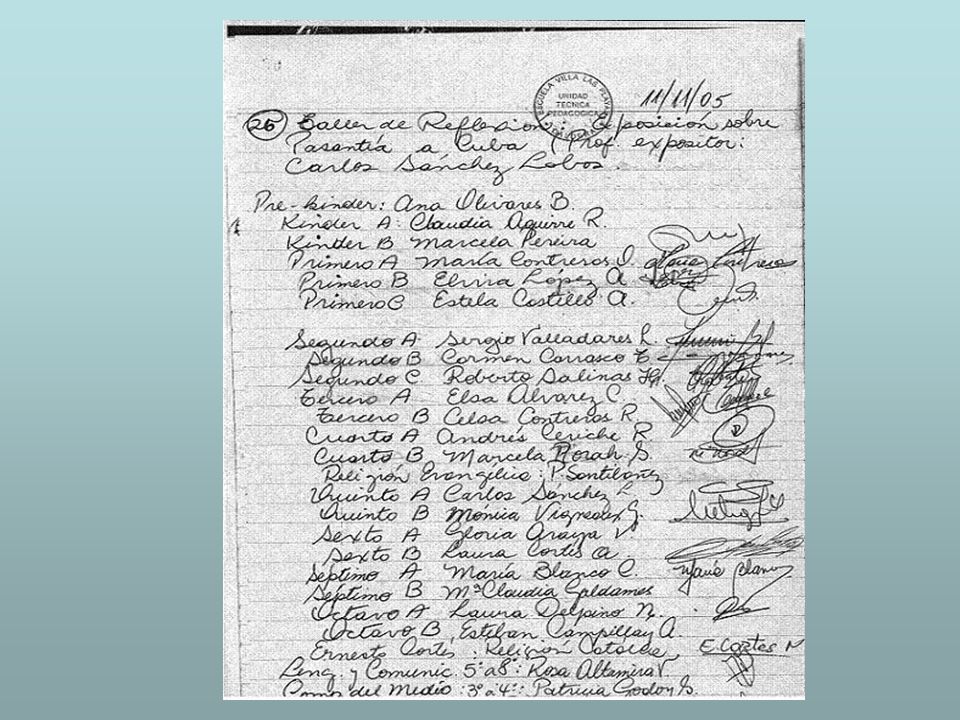 ESCUELA VILLA LAS PLAYAS
UNIDAD
TECNICA
PEDAGOGICA
11/11/05
26 Taller de Reflexión: Exposición sobre
Pasantía a Cuba (Prof. expositor:
Carlos Sánchez Lobos.
Pre-kinder: Ana Olivares B.
Kinder A: Claudia Aguirre R.
Kinder B Marcela Pereira
Primero A María Contreras O.
Primero B Elvira López A
Primero C Estela Castillo A.
Segundo A Sergio Valladares L.
Segundo B Carmen Carrasco T
Segundo C. Roberto Salinas
Tercero A Elsa Alvarez C.
Tercero B Celsa Contreras R
Cuarto A Andrés Ceriche R.
Cuarto B Marcela S.
Religión Evangélica: P. Santibañez
Quinto A Carlos Sánchez L
Quinto B Mónica G.
Sexto A Gloria Araya V.
Sexto B Laura Cortés A
Séptimo A María Blanco C. María Blanco
Séptimo B Mª Claudia Galdames
Octavo A Laura Delpino N.
Octavo B Esteban Campillay A.
Ernesto Cortés: Religión Católica E. Cortés M
Leng. y Comunic. 5° a 8°: Rosa Altamira V.
Comp del Medio: 3° a 4°: Patricia Godoy S.